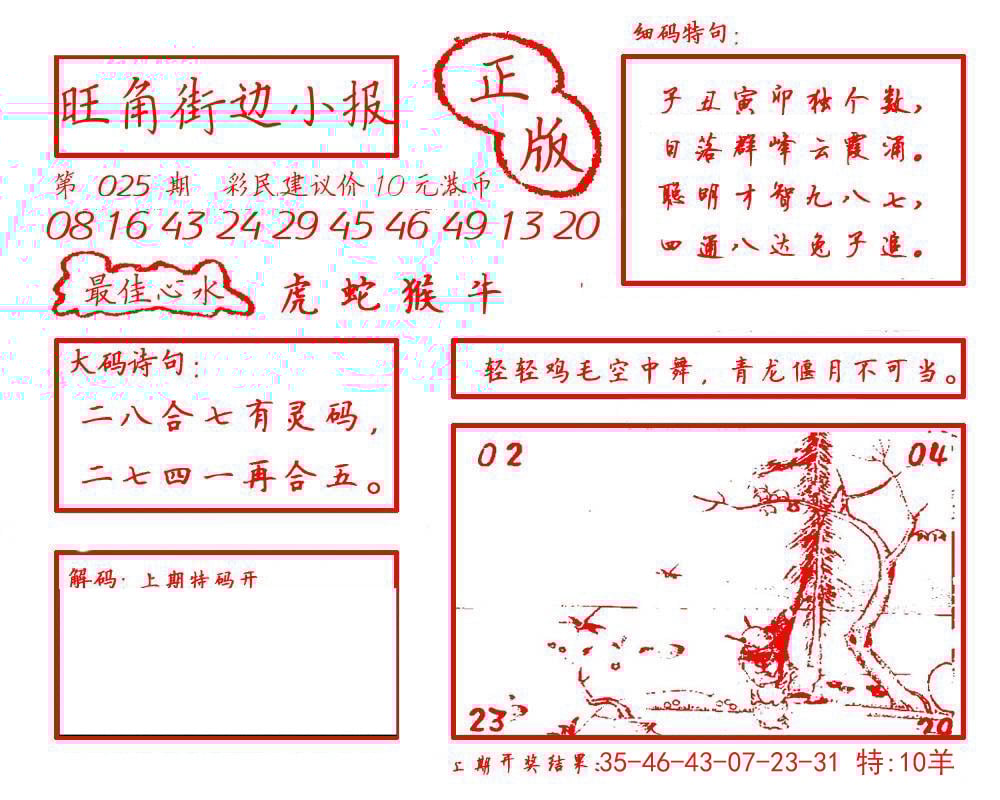 旺角街边小报
正版
第 025 期 彩民建议价 10 元港币
08 16 43 24 29 45 46 49 13 20
最佳心水
虎 蛇 猴 牛
细码特句：
子丑寅卯独个数，
日落群峰云霞涌。
聪明才智九八七，
四通八达兔子追。
大码诗句：
二八合七有灵码，
二七四一再合五。
轻轻鸡毛空中舞，青龙偃月不可当。
解码· 上期特码开
02
04
23
20
上期开奖结果：35-46-43-07-23-31 特：10羊